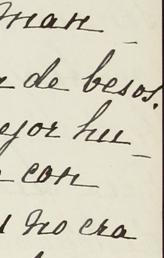 man-
a de besos.
ejor hu-
con
no era